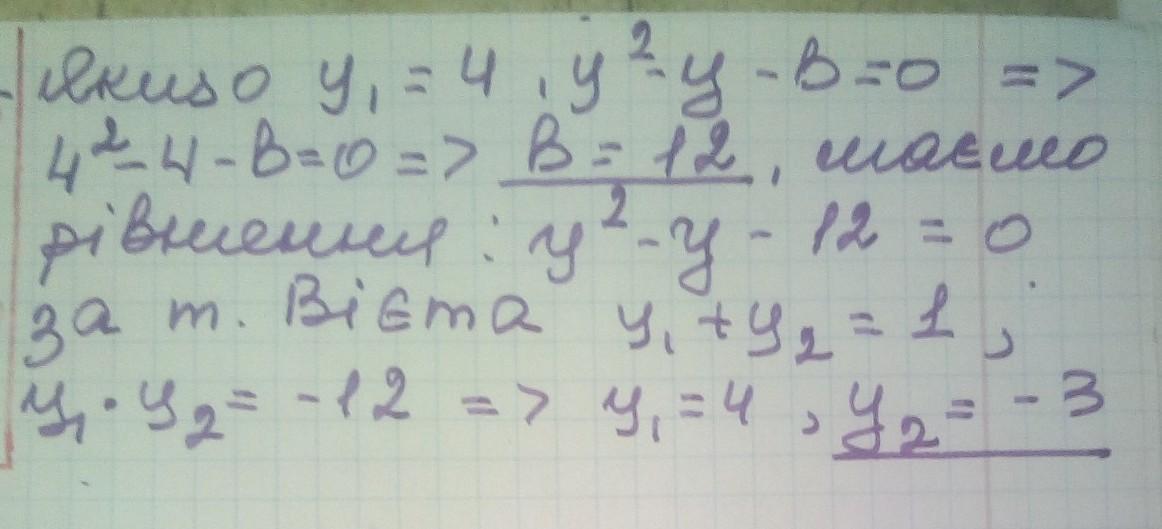 Якщо y₁ = 4, y² - y - в = 0 =>
4² - 4 - в = 0 => в = 12, маємо
рівняння: y² - y - 12 = 0
за т. Вієта y₁ + y₂ = 1,
y₁ · y₂ = -12 => y₁ = 4, y₂ = -3